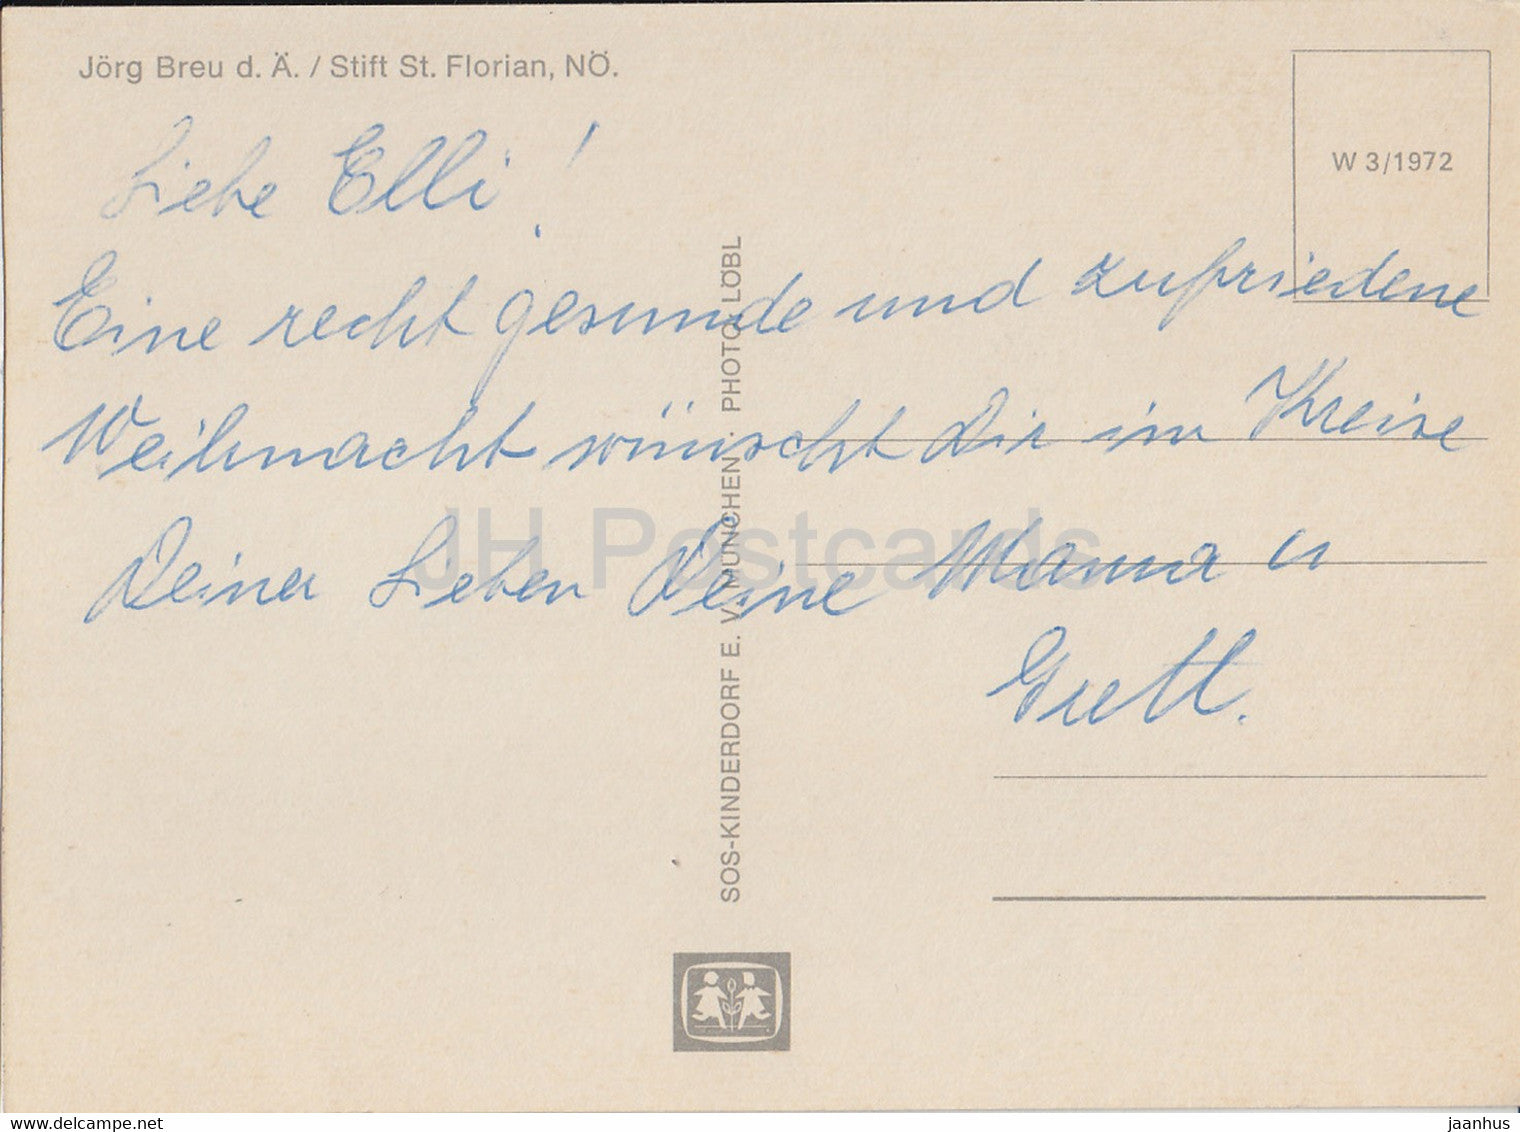 Jörg Breu d. Ä. / Stift St. Florian, NÖ.
W 3/1972
Liebe Elli!
Eine recht gesunde und zufriedene
Weihnacht wünscht Dir im Kreise
Deiner Lieben Deine Mama u
SOS-KINDERDORF E. V. MÜNCHEN · PHOTO LÖBL
JH Postcards
www.delcampe.net
jaanhus